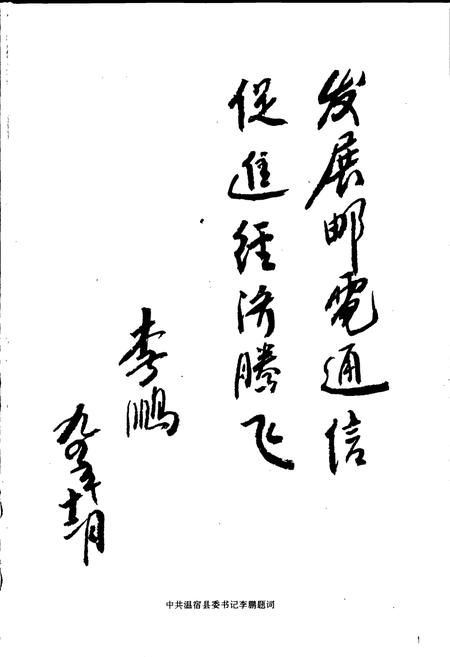 发展邮電通信
促進經济腾飞
李鹏
九年月
中共温宿县委书记李鹏题词
1